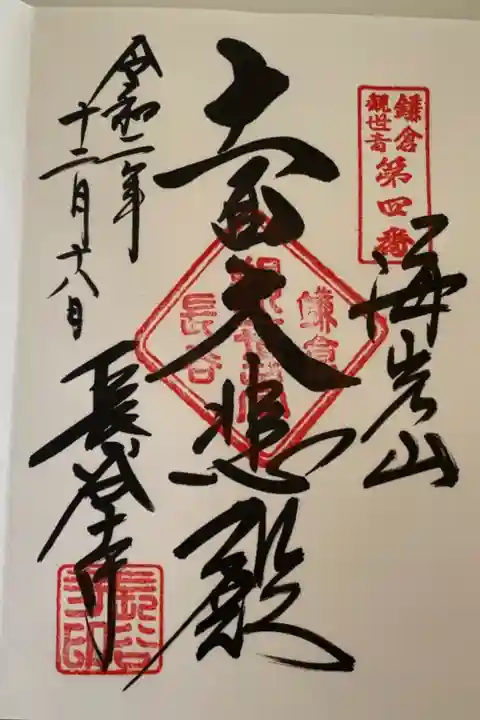 鎌倉
観世音
第四番
海光山
十一面大悲殿
鎌倉
長谷
令和二年
十二月十八日
長谷寺
長谷
寺印